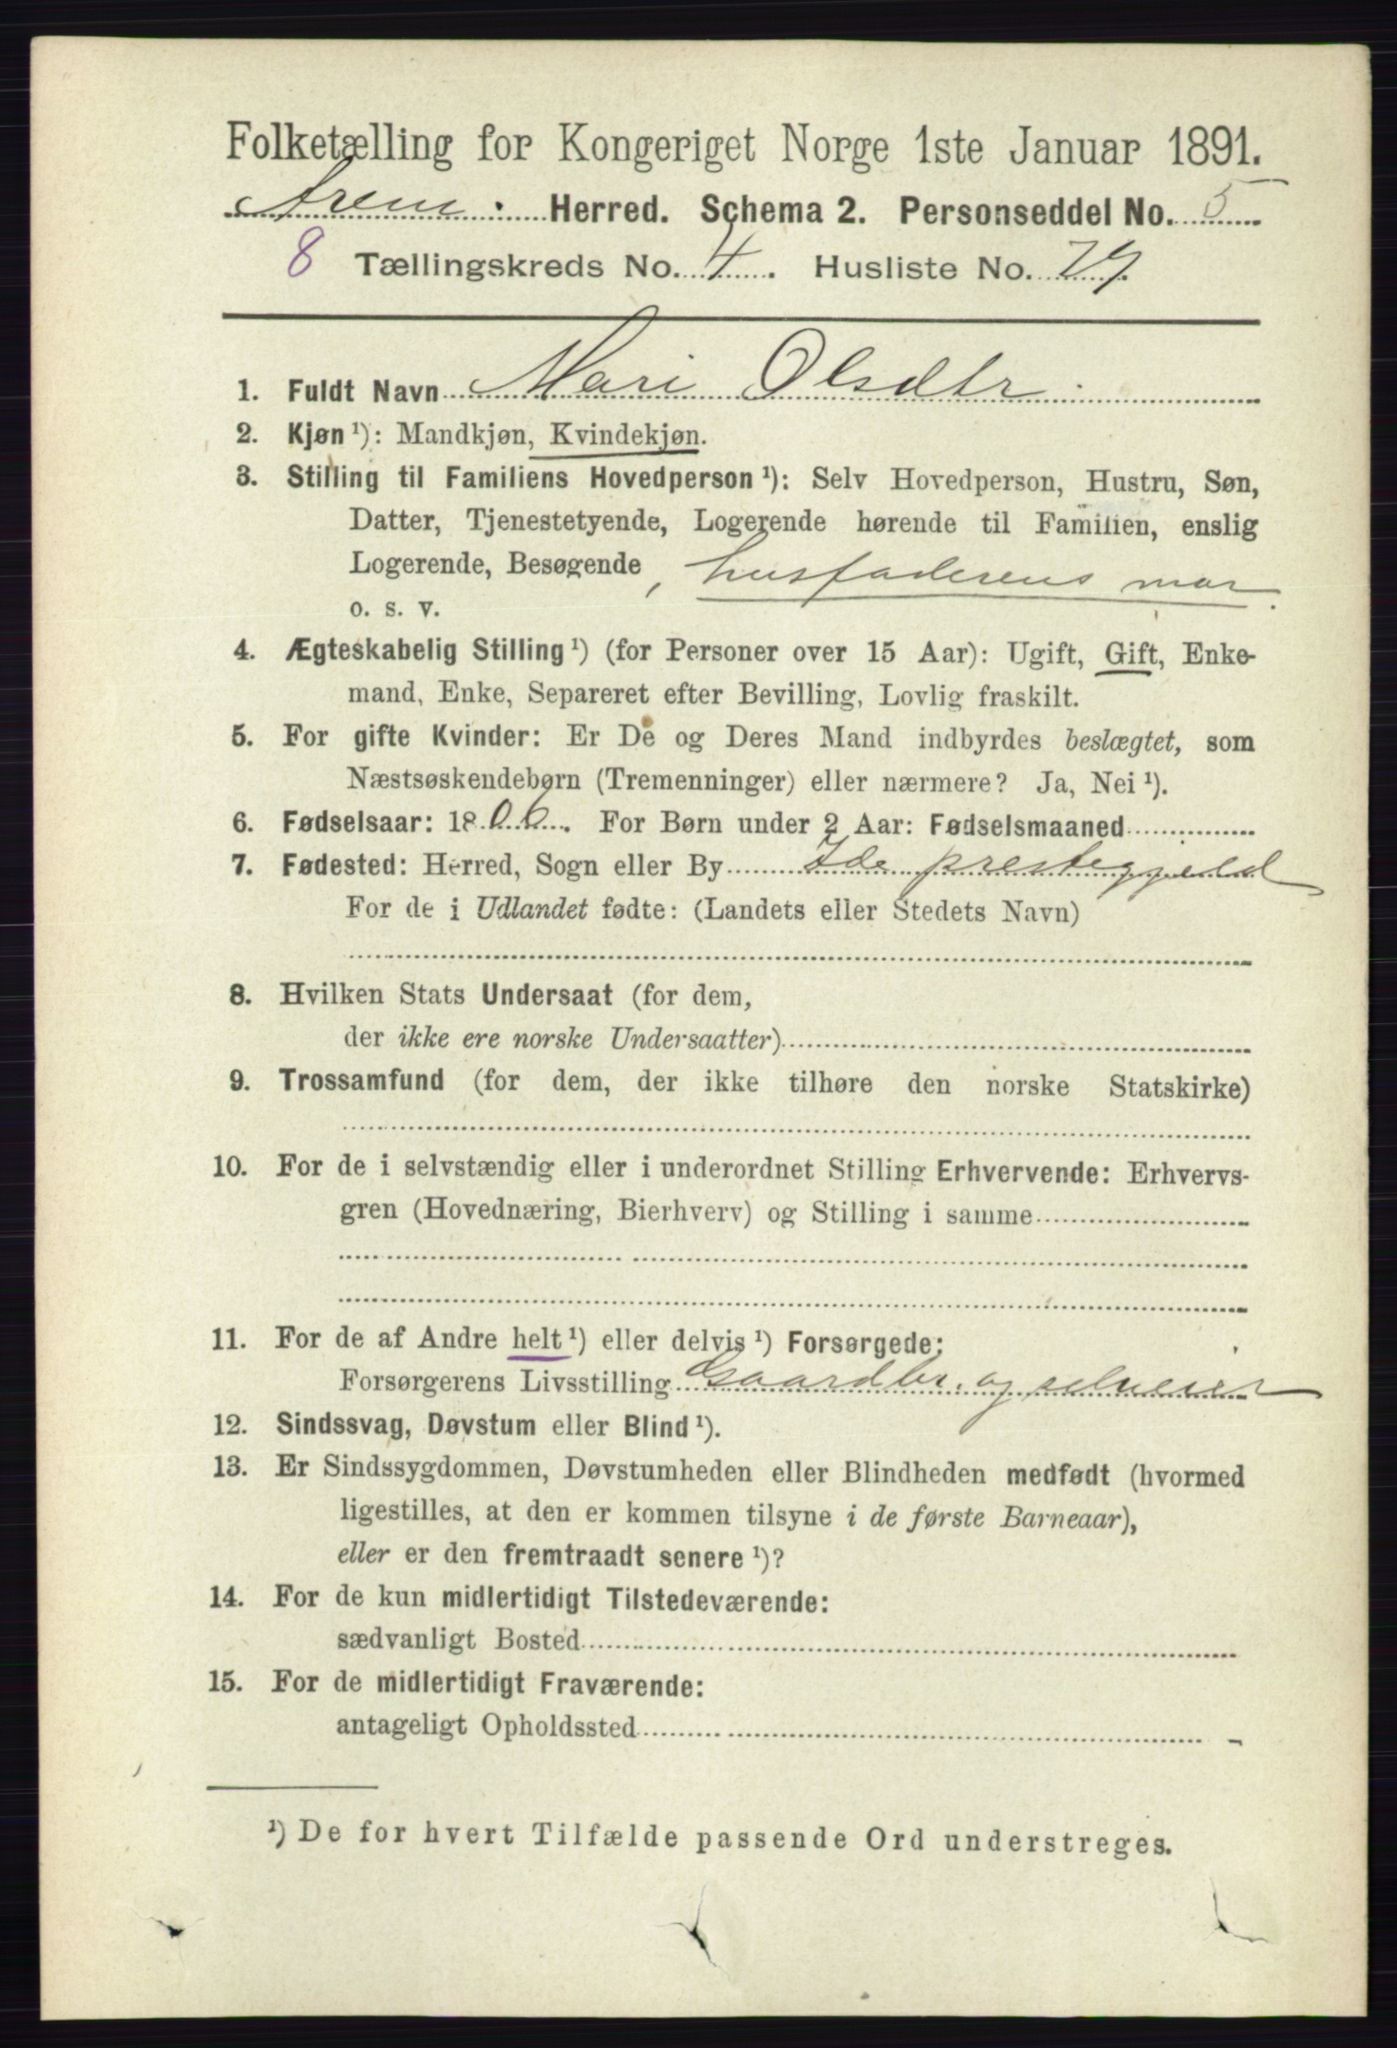 Folketælling for Kongeriget Norge 1ste Januar 1891.
Arem. Herred. Schema 2. Personseddel No. 5
8 Tællingskreds No. 4. Husliste No. 79.
1. Fuldt Navn Mari Olsdtr.
2. Kjøn ¹): Mandkjøn, Kvindekjøn.
3. Stilling til Familiens Hovedperson ¹): Selv Hovedperson, Hustru, Søn,
Datter, Tjenestetyende, Logerende hørende til Familien, enslig
Logerende, Besøgende, husfaderens mor.
o. s. v.
4. Ægteskabelig Stilling ¹) (for Personer over 15 Aar): Ugift, Gift, Enke-
mand, Enke, Separeret efter Bevilling, Lovlig fraskilt.
5. For gifte Kvinder: Er De og Deres Mand indbyrdes beslægtet, som
Næstsøskendebørn (Tremenninger) eller nærmere? Ja, Nei ¹).
6. Fødselsaar: 1806. For Børn under 2 Aar: Fødselsmaaned
7. Fødested: Herred, Sogn eller By Ide prestegjeld
For de i Udlandet fødte: (Landets eller Stedets Navn)
8. Hvilken Stats Undersaat (for dem,
der ikke ere norske Undersaatter)
9. Trossamfund (for dem, der ikke tilhøre den norske Statskirke)
10. For de i selvstændig eller i underordnet Stilling Erhvervende: Erhvervs-
gren (Hovednæring, Bierhverv) og Stilling i samme
11. For de af Andre helt ¹) eller delvis ¹) Forsørgede:
Forsørgerens Livsstilling Gaardbr. og selveier
12. Sindssvag, Døvstum eller Blind ¹).
13. Er Sindssygdommen, Døvstumheden eller Blindheden medfødt (hvormed
ligestilles, at den er kommen tilsyne i de første Barneaar),
eller er den fremtraadt senere ¹)?
14. For de kun midlertidigt Tilstedeværende:
sædvanligt Bosted
15. For de midlertidigt Fraværende:
antageligt Opholdssted
¹) De for hvert Tilfælde passende Ord understreges.